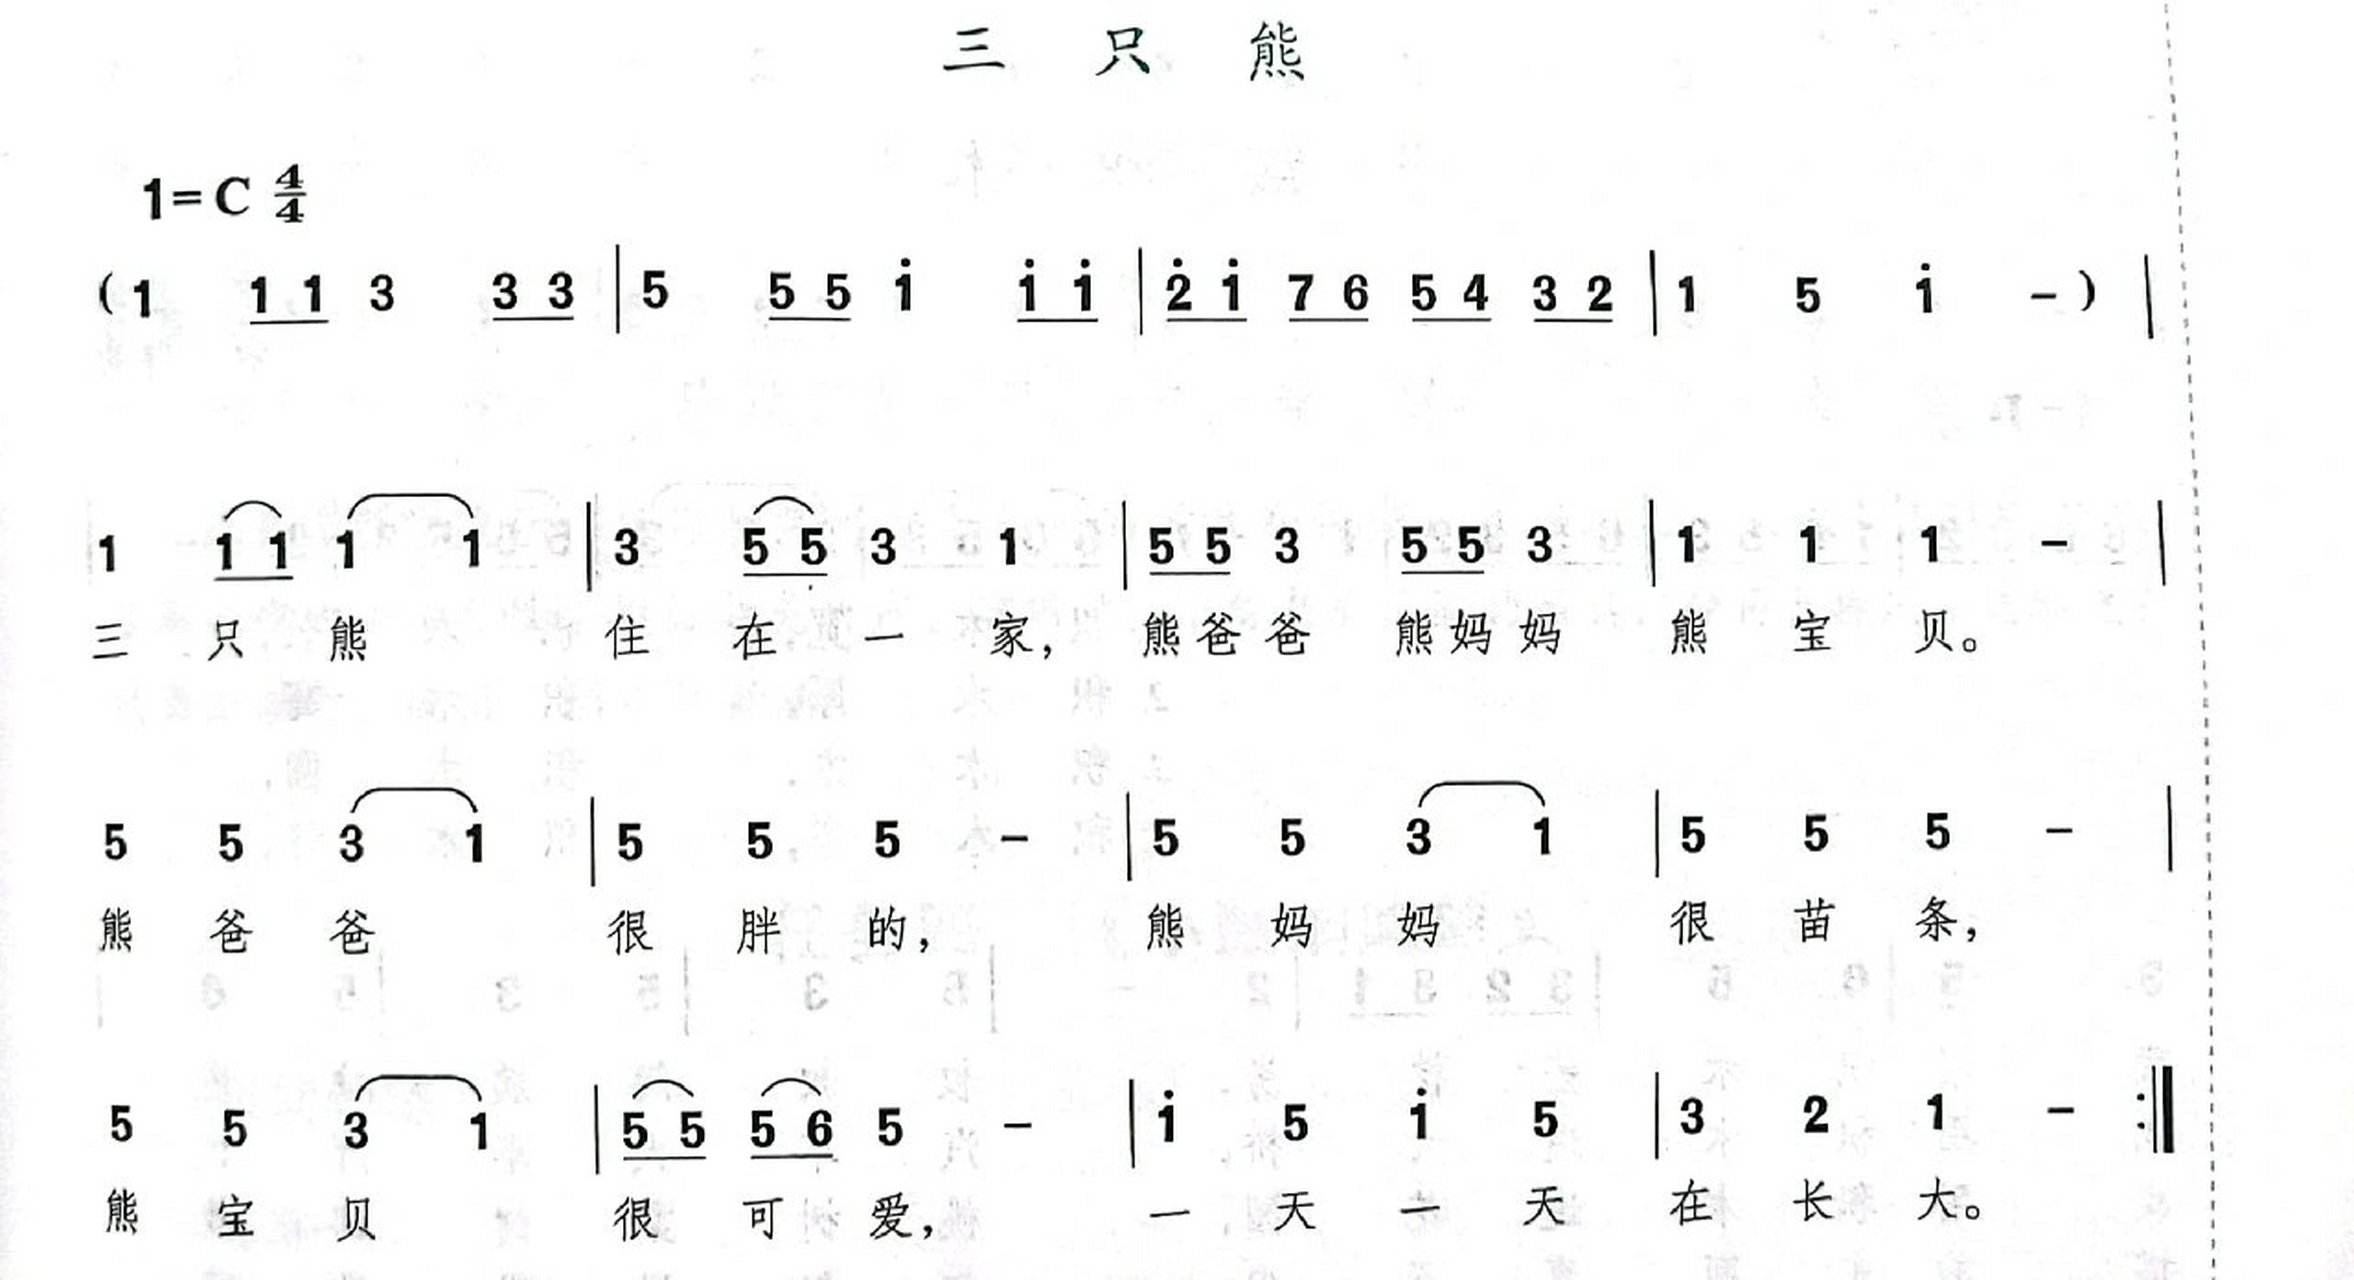 三 只 熊
1=C 4/4
( 1 1 1 3 3 3 | 5 5 5 i i i | 2̇ i 7 6 5 4 3 2 | 1 5 i – ) |
1 1 1 1 1 | 3 5 5 3 1 | 5 5 3 5 5 3 | 1 1 1 – |
三 只 熊 住 在 一 家， 熊 爸 爸 熊 妈 妈 熊 宝 贝。
5 5 3 1 | 5 5 5 – | 5 5 3 1 | 5 5 5 – |
熊 爸 爸 很 胖 的， 熊 妈 妈 很 苗 条，
5 5 3 1 | 5 5 5 6 5 – | i 5 i 5 | 3 2 1 – :‖
熊 宝 贝 很 可 爱， 一 天 一 天 在 长 大。